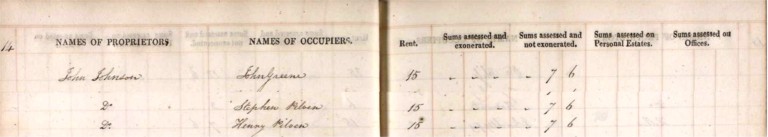 14
NAMES OF PROPRIETORS NAMES OF OCCUPIERS. Rent. Sums assessed and exonerated. Sums assessed and not exonerated. Sums assessed on Personal Estates. Sums assessed on Offices.
John Johnson John Greene 15 " " " " 7 6
Do Stephen 15 " " " " 7 6
Do. Henry 15 " " " " 7 6